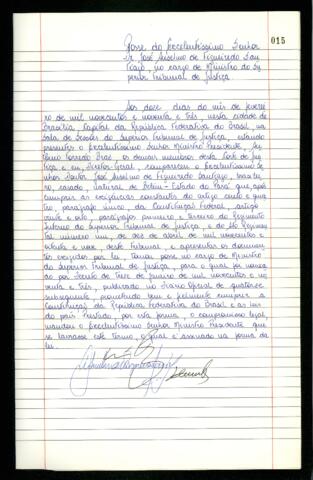 015
Posse do Excelentíssimo Senhor
Dr. José Anselmo de Figueiredo San-
tiago, no cargo de Ministro do Su-
perior Tribunal de Justiça
Aos doze dias do mês de feverei-
ro de mil novecentos e noventa e três, nesta cidade de
Brasília, Capital da República Federativa do Brasil, na
Sala de Sessões do Superior Tribunal de Justiça, estando
presentes o Excelentíssimo Senhor Ministro Presidente, An-
tônio Torreão Braz, os demais membros desta Corte de Jus-
tiça e eu, Diretor-Geral, compareceu o Excelentíssimo Se-
nhor Doutor José Anselmo de Figueiredo Santiago, brasilei-
ro, casado, natural de Belém - Estado do Pará que, após
cumprir as exigências constantes do artigo cento e qua-
tro, parágrafo único, da Constituição Federal, artigo
vinte e oito, parágrafos primeiro e terceiro do Regimento
Interno do Superior Tribunal de Justiça, e do Ato Regimen-
tal número um, de dez de abril de mil novecentos e
oitenta e nove, deste Tribunal, e apresentar os documen-
tos exigidos por lei, tomou posse no cargo de Ministro
do Superior Tribunal de Justiça, para o qual foi nomea-
do por Decreto de treze de janeiro de mil novecentos e no-
venta e três, publicado no Diário Oficial de quatorze
subsequente, prometendo bem e fielmente cumprir a
Constituição da República Federativa do Brasil e as leis
do país. Prestado, por esta forma, o compromisso legal,
mandou o Excelentíssimo Senhor Ministro Presidente que
se lavrasse este termo, o qual é assinado na forma da
lei.